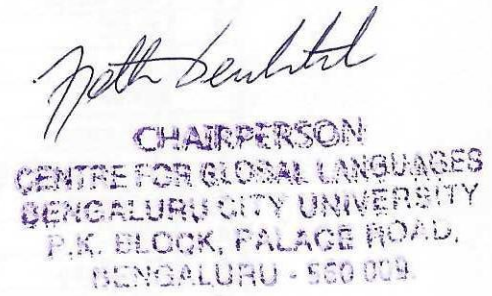 CHAIRPERSON
CENTRE FOR GLOBAL LANGUAGES
BENGALURU CITY UNIVERSITY
P.K. BLOCK, PALACE ROAD,
BENGALURU - 560 009.